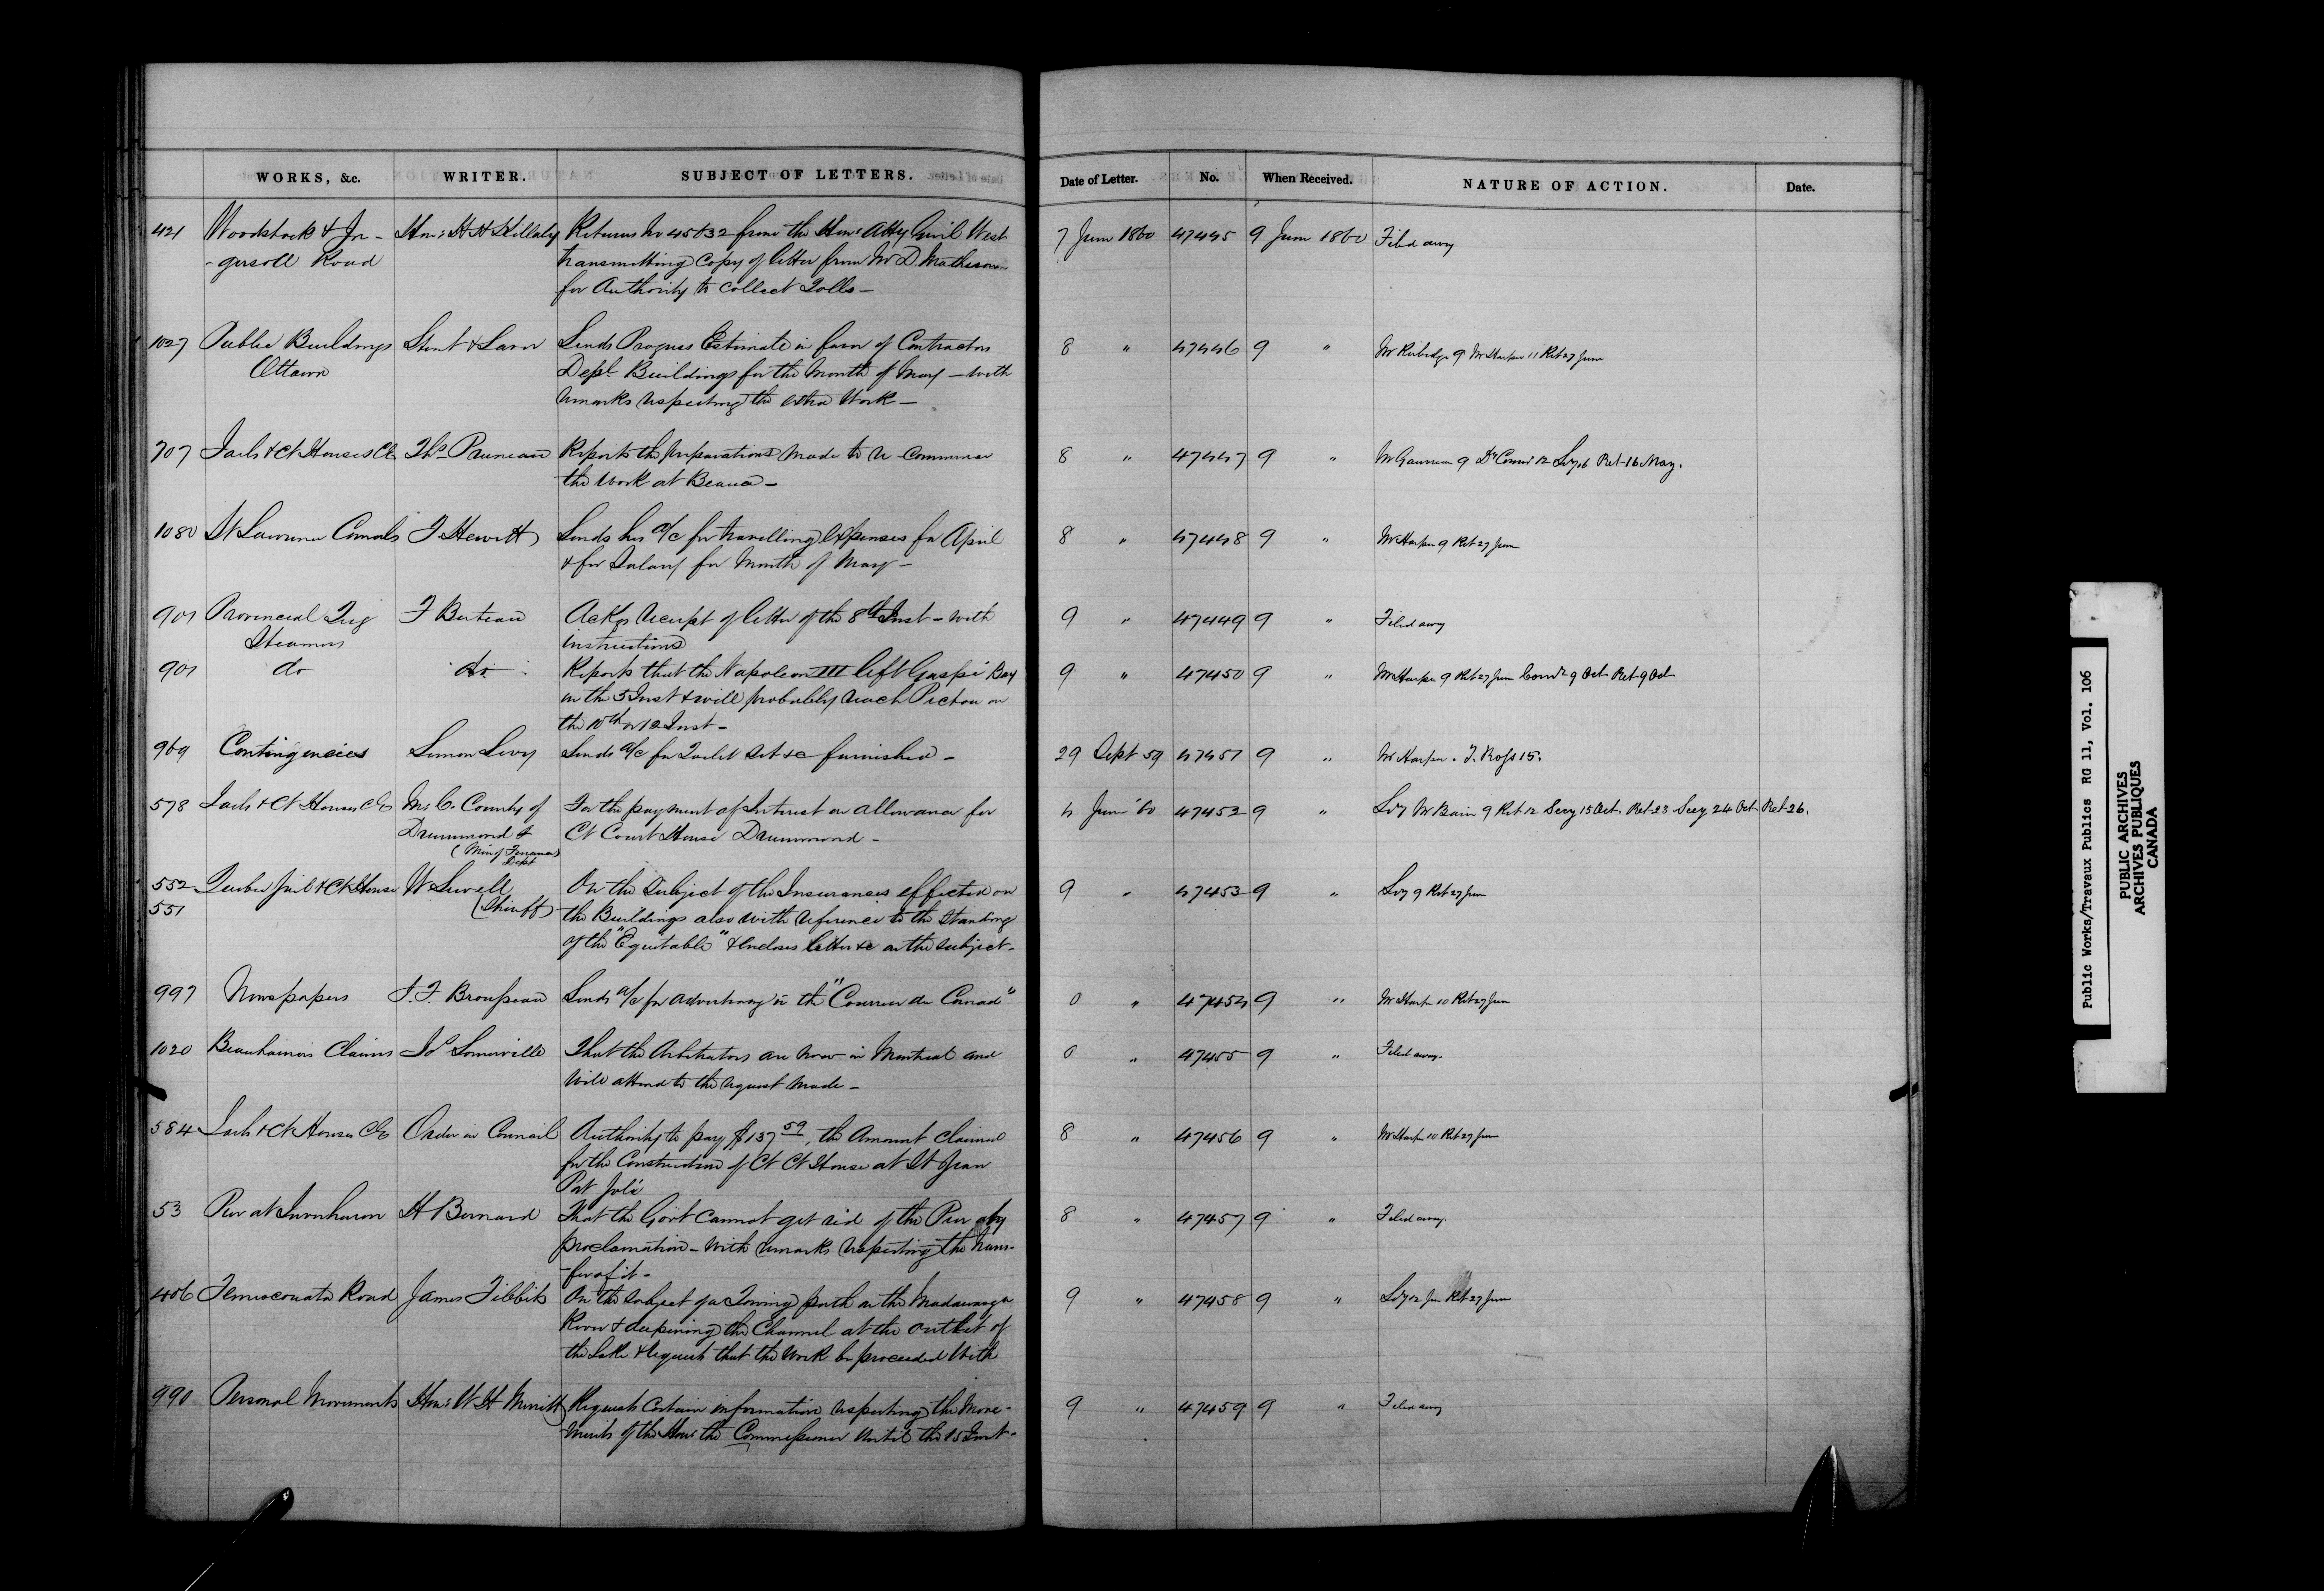 WORKS, &c. WRITER. SUBJECT OF LETTERS. Date of Letter. No. When Received. NATURE OF ACTION. Date.
421 Woodstock & In- Hon: H H Killaly Returns No 45832 from the Hon: Atty Genl West 7 June 1860 47445 9 June 1860 Filed away
-gersoll Road transmitting Copy of letter from Mr D. Matheson
for Authority to collect Tolls -
1027 Public Buildings Stent & Laver Sends Progress Estimate in favor of Contractors 8 " 47446 9 " Mr Rubidge 9 Mr Harper 11 Ret 27 June
Ottawa Deptl Buildings for the Month of May - with
remarks respecting the extra Work -
707 Jails & Ct Houses CE Ths Pruneau Reports the preparations made to re-commence 8 " 47447 9 " Mr Gauvreau 9 Ret 16 May.
the Work at Beauce -
1080 St Lawrence Canals T. Hewitt Sends his a/c for travelling expenses for April 8 " 47448 9 " Mr Harper 9 Ret 27 June
& for Salary for Month of May -
901 Provincial Tug F Buteau Ackgs receipt of letter of the 8th Inst - with 9 " 47449 9 " Filed away
Steamers instructions
901 do do Reports that the Napoleon III left Gaspé Bay 9 " 47450 9 " Mr Harper 9 Ret 27 June Comr 9 Oct Ret 9 Oct
on the 5 Inst & will probably reach Pictou on
the 10th or 12 Inst -
969 Contingencies Simon Levy Sends a/c for Toilet Set &c furnished - 29 Sept 59 47451 9 " Mr Harper. T. Ross 15.
578 Jails & Ct Houses CE M. C. County of For the payment of Interest on allowance for 4 June 60 47452 9 " Scy Mr Bain 9 Ret 12 Secy 15 Oct. Ret 23 Secy 24 Oct Ret 26.
Drummond & Ct Court House Drummond -
(Min of Finance)
Dept
552 Quebec Jail & Ct House W Sewell On the Subject of the Insurances effected on 9 " 47453 9 " Scy 9 Ret 27 June
551 (Sheriff) the Buildings also with reference to the standing
of the "Equitable" & encloses letter &c on the subject -
997 Newspapers J. T. Brousseau Sends a/c for advertising in the "Courrier du Canada" 8 " 47454 9 " Mr Harper 10 Ret 27 June
1020 Beauharnois Claims Js Somerville That the Arbitrators are now in Montreal and 8 " 47455 9 " Filed away.
Will attend to the request made -
584 Jails & Ct Houses CE Order in Council Authority to pay $137 59, the Amount claimed 8 " 47456 9 " Mr Harper 10 Ret 27 June
for the Construction of Ct Ct House at St Jean
Port Joli
53 Pier at Inverhuron H Bernard That the Govt Cannot get rid of the Pier by 8 " 47457 9 " Filed away.
proclamation - with remarks respecting the trans-
-fer of it -
406 Temiscouata Road James Tibbits On the subject of a Towing path on the Madawaska 9 " 47458 9 " Scy 12 June Ret 27 June
River & deepening the Channel at the outlet of
the Lake & requests that the work be proceeded With
990 Personal Movements Hon: W H Merritt Requests Certain information respecting the Move- 9 " 47459 9 " Filed away
ments of the Hon: the Commissioner Until the 15 Inst -
Public Works/Travaux Publics RG 11, Vol. 106
PUBLIC ARCHIVES
ARCHIVES PUBLIQUES
CANADA